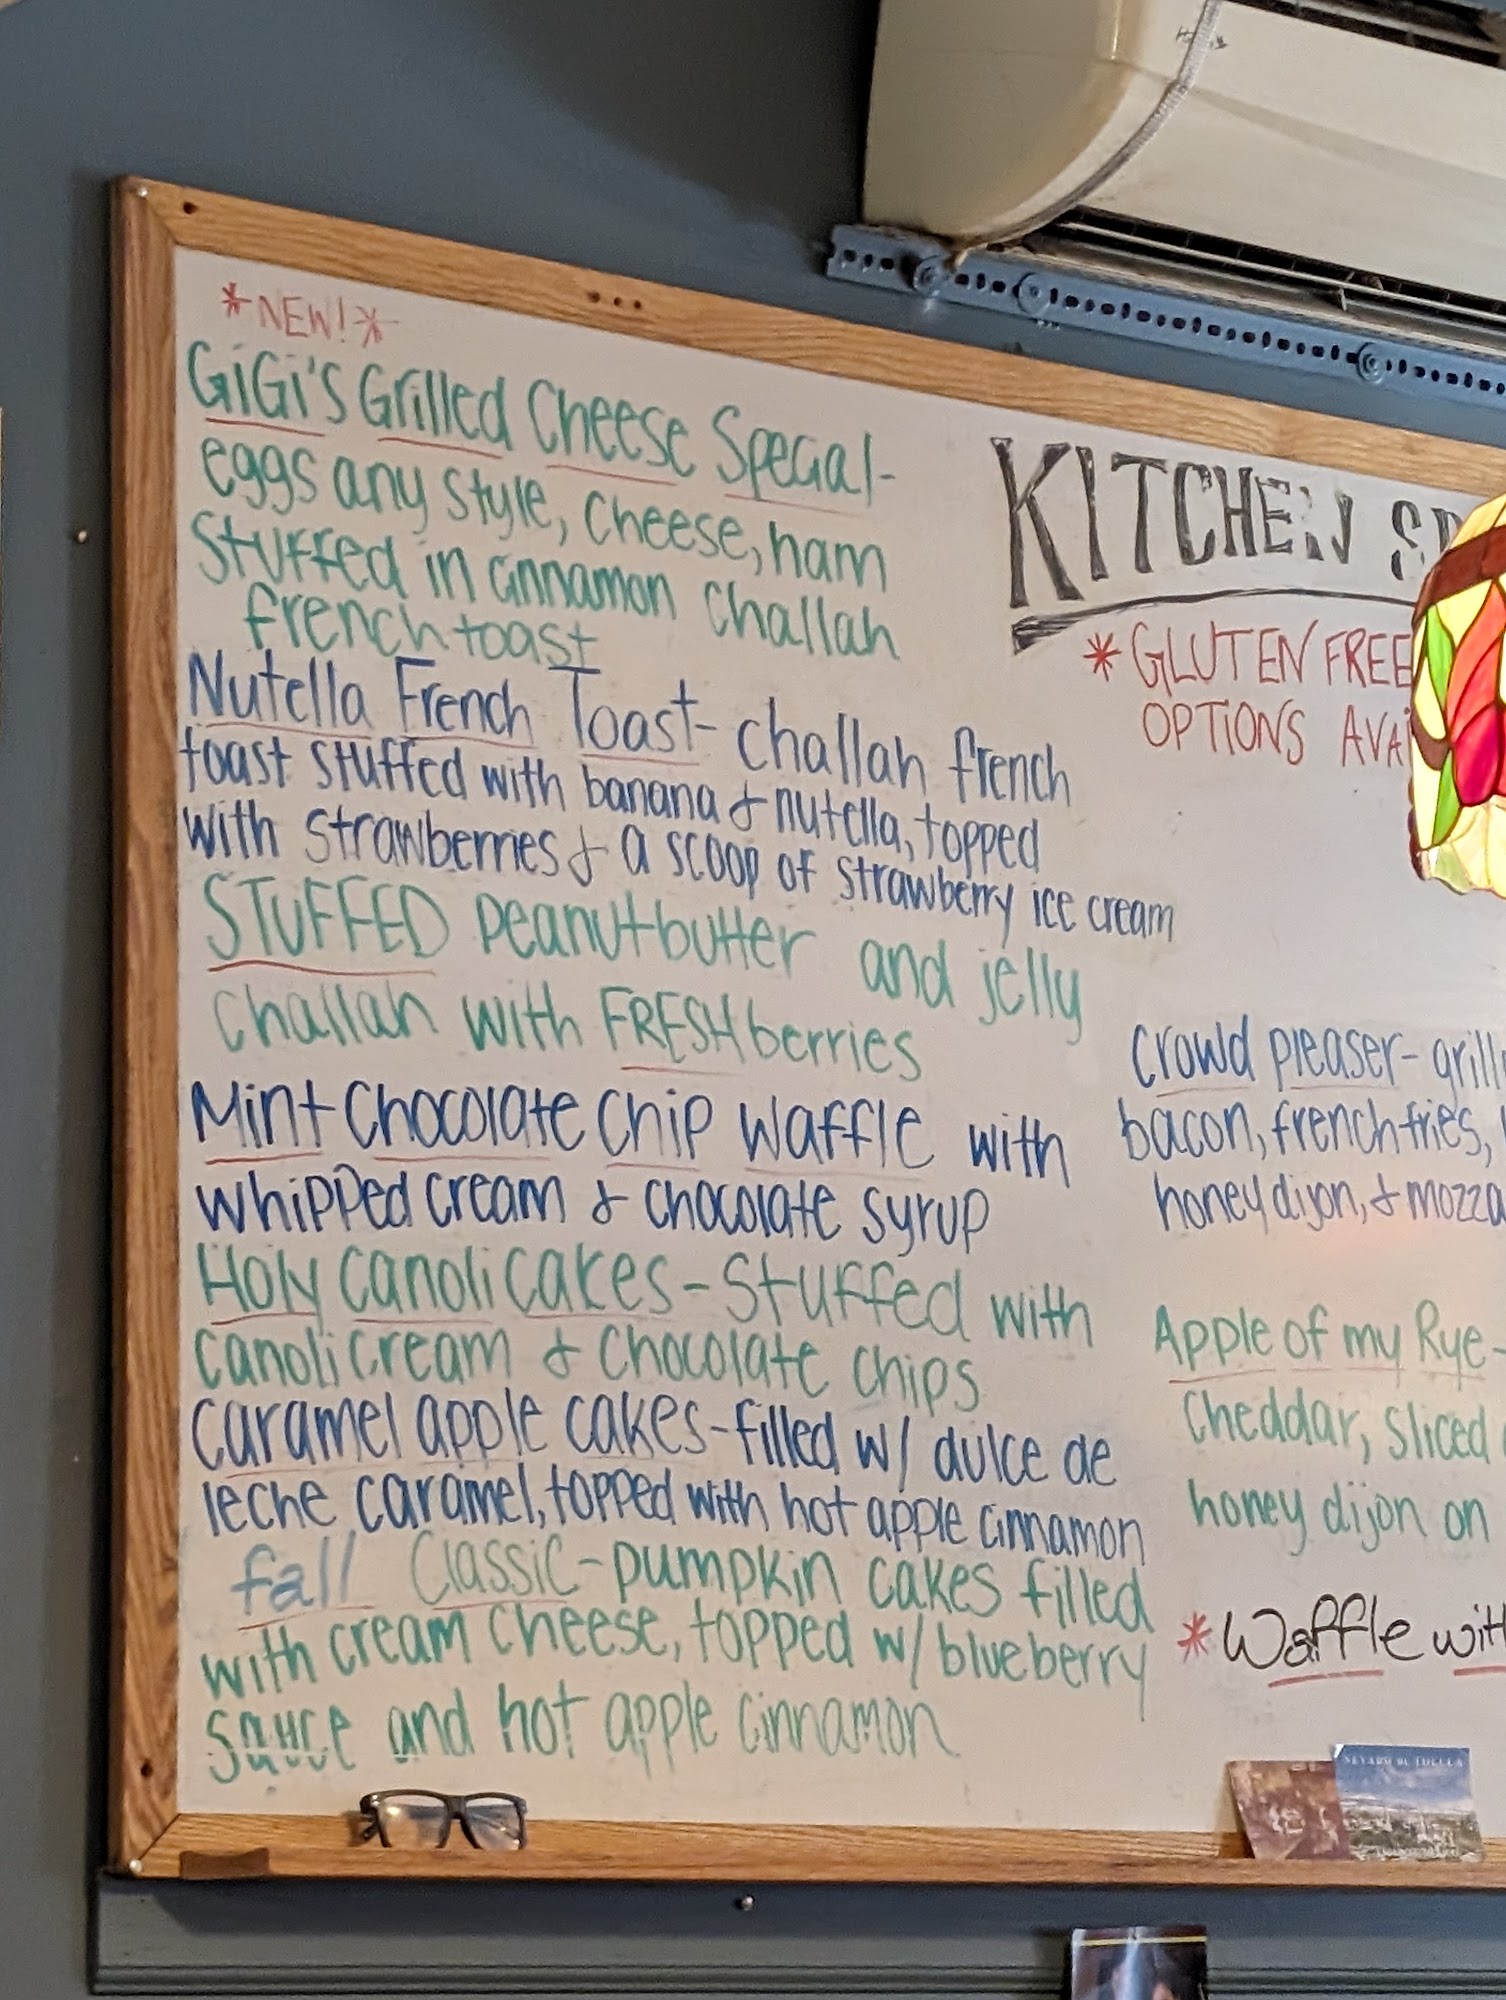 *NEW!*
GiGi's Grilled Cheese Special-
eggs any style, cheese, ham
stuffed in cinnamon challah
french toast
Nutella French Toast- challah french
toast stuffed with banana & nutella, topped
with strawberries & a scoop of strawberry ice cream
STUFFED peanutbutter and jelly
challah with FRESH berries
Mint Chocolate Chip Waffle with
whipped cream & chocolate syrup
Holy Canoli Cakes - Stuffed with
canoli cream & chocolate chips
Caramel apple cakes-filled w/ dulce de
leche caramel, topped with hot apple cinnamon
fall Classic-pumpkin cakes filled
with cream cheese, topped w/ blueberry
sauce and hot apple cinnamon
KITCHEN
*GLUTEN FREE
OPTIONS
Crowd pleaser-
bacon, french fries,
honey dijon, &
Apple of my Rye-
cheddar, sliced
honey dijon on
*Waffle
NEVADO DE TOLUCA